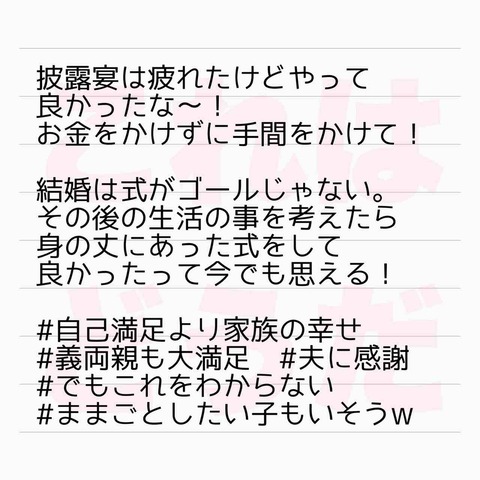 披露宴は疲れたけどやって
良かったな〜！
お金をかけずに手間をかけて！
結婚は式がゴールじゃない。
その後の生活の事を考えたら
身の丈にあった式をして
良かったって今でも思える！
#自己満足より家族の幸せ
#義両親も大満足　#夫に感謝
#でもこれをわからない
#ままごとしたい子もいそうw